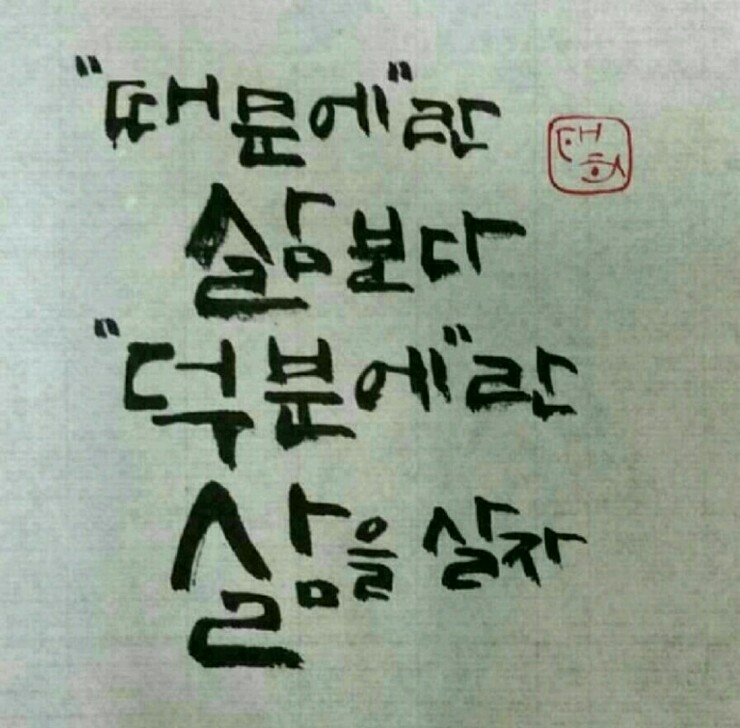 "때문에"란
삶보다
"덕분에"란
삶을 살자